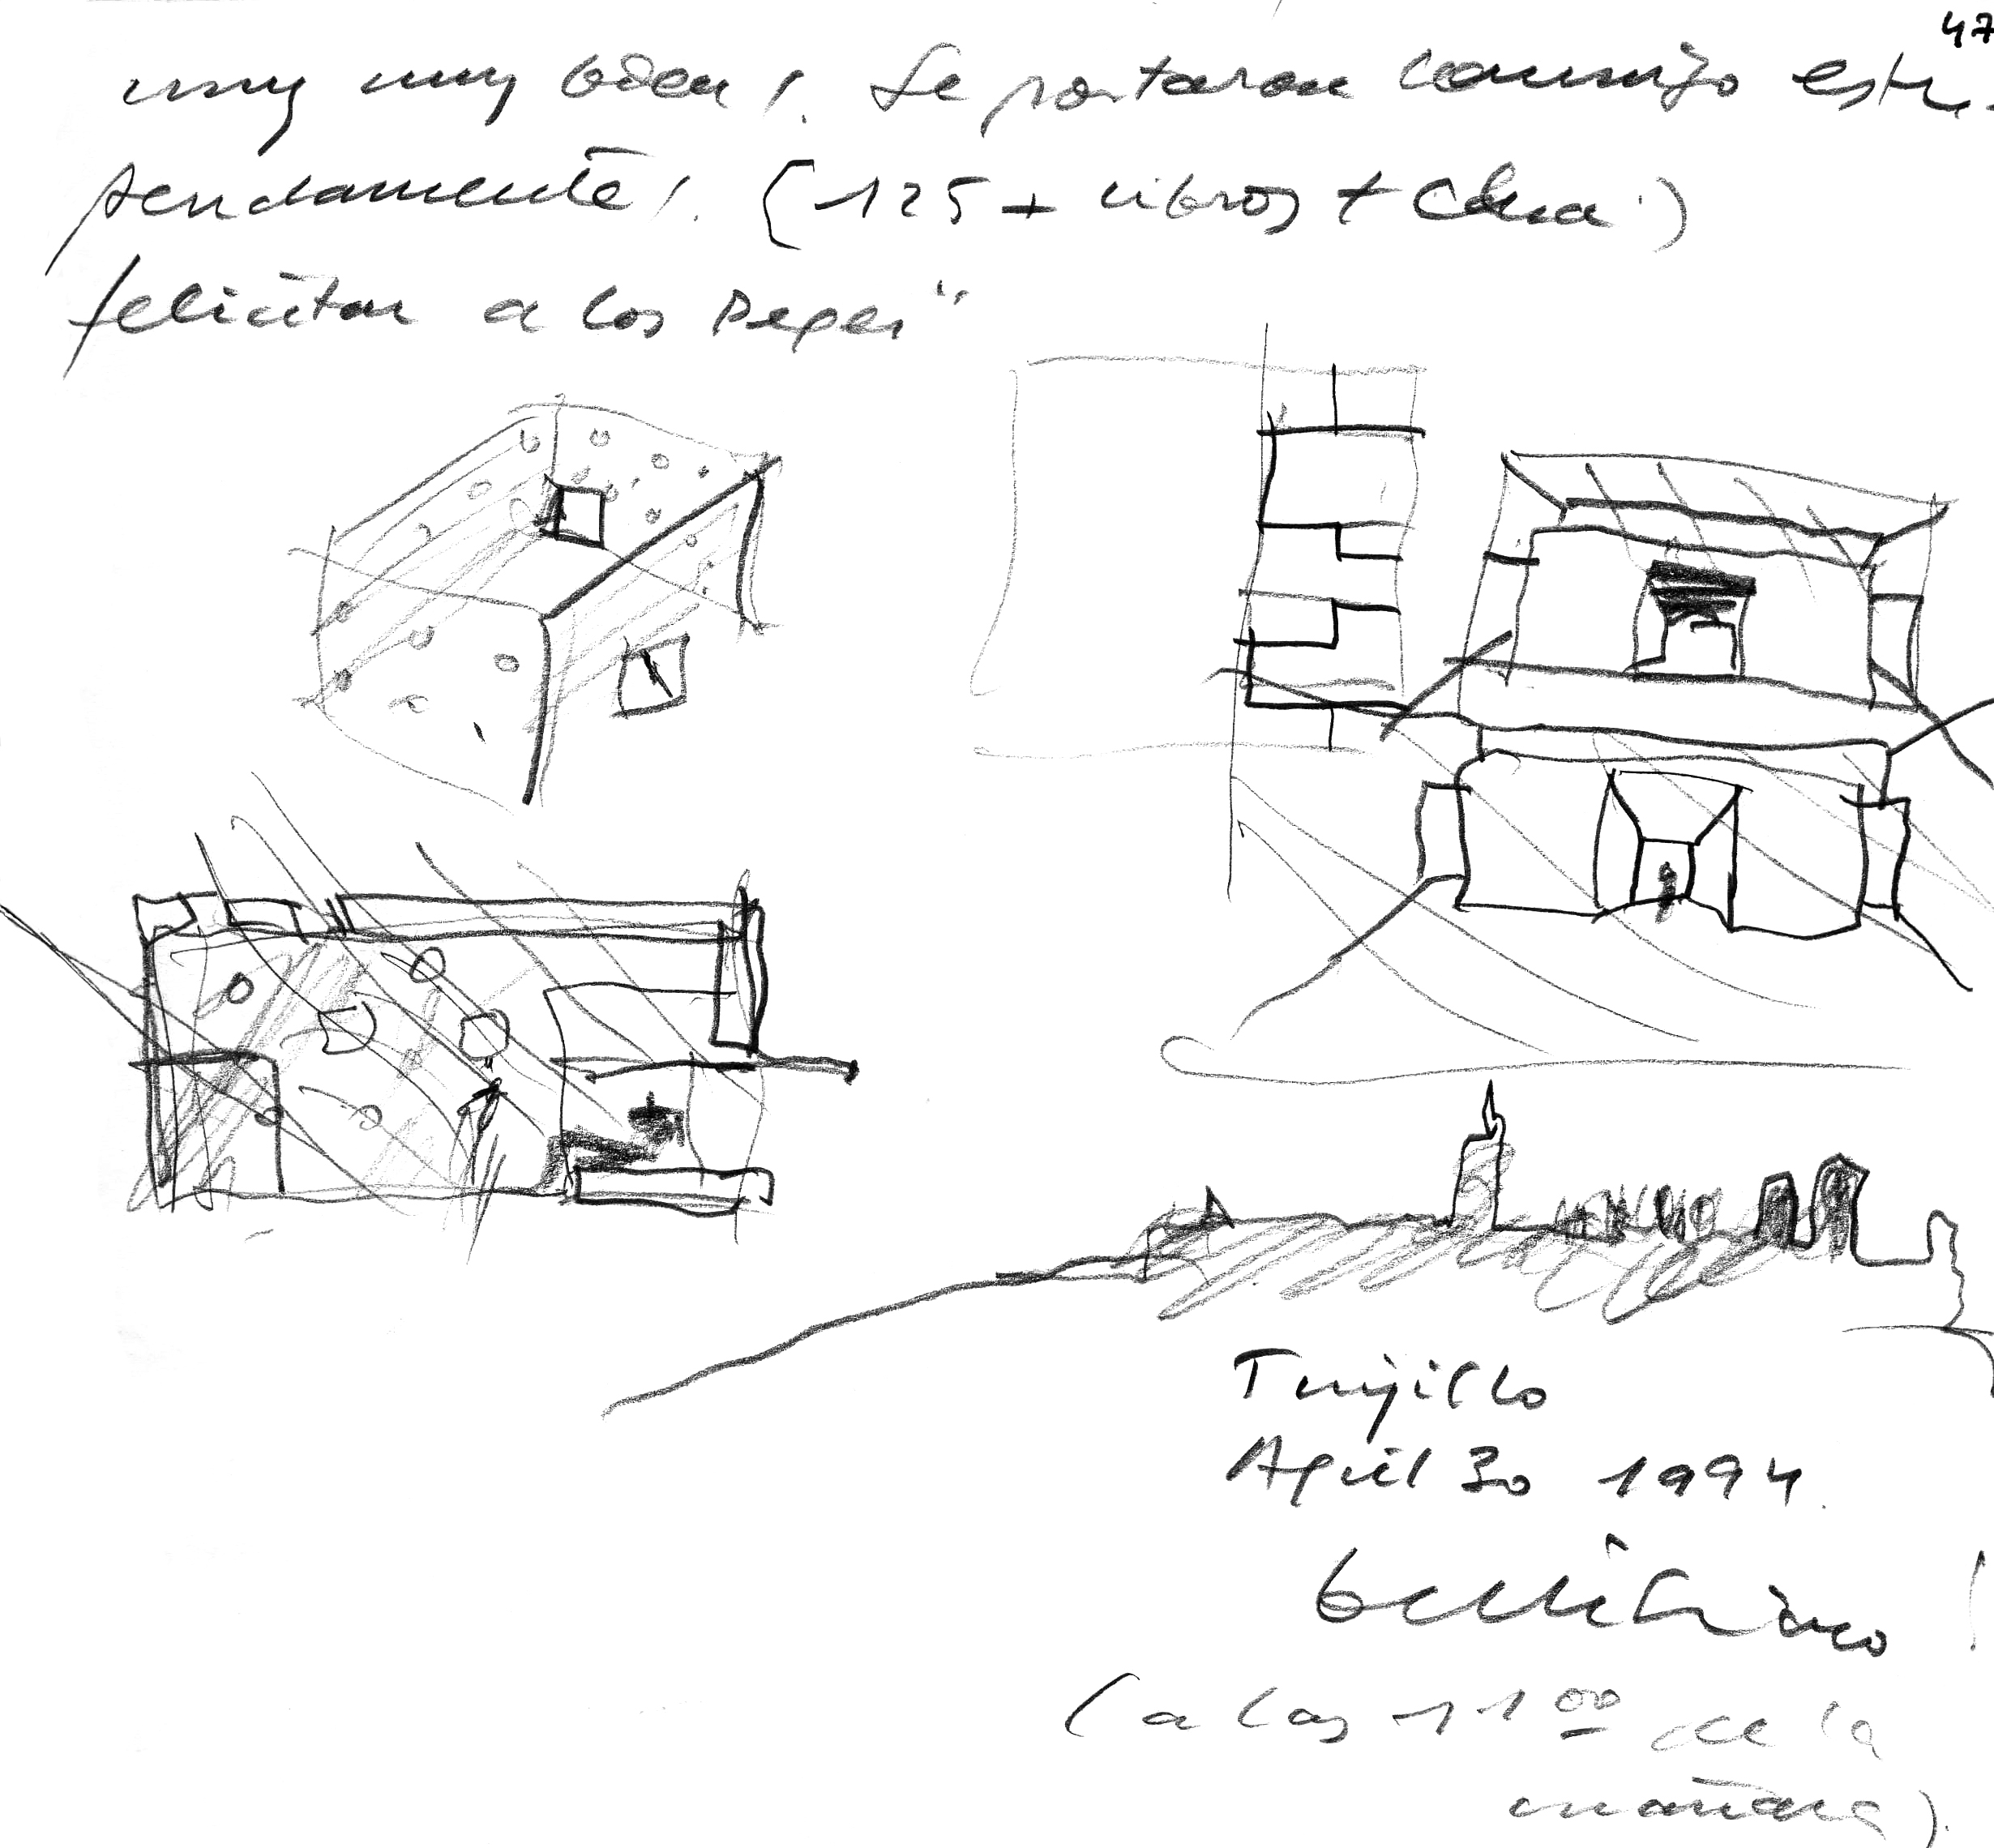 47
muy muy bien!. Se portaron conmigo estu-
pendamente!. (125 + libros + cena.)
felicitar a los
Trujillo
April 30 1994.
buenísimo!
(a las 11 00 de la
mañana).